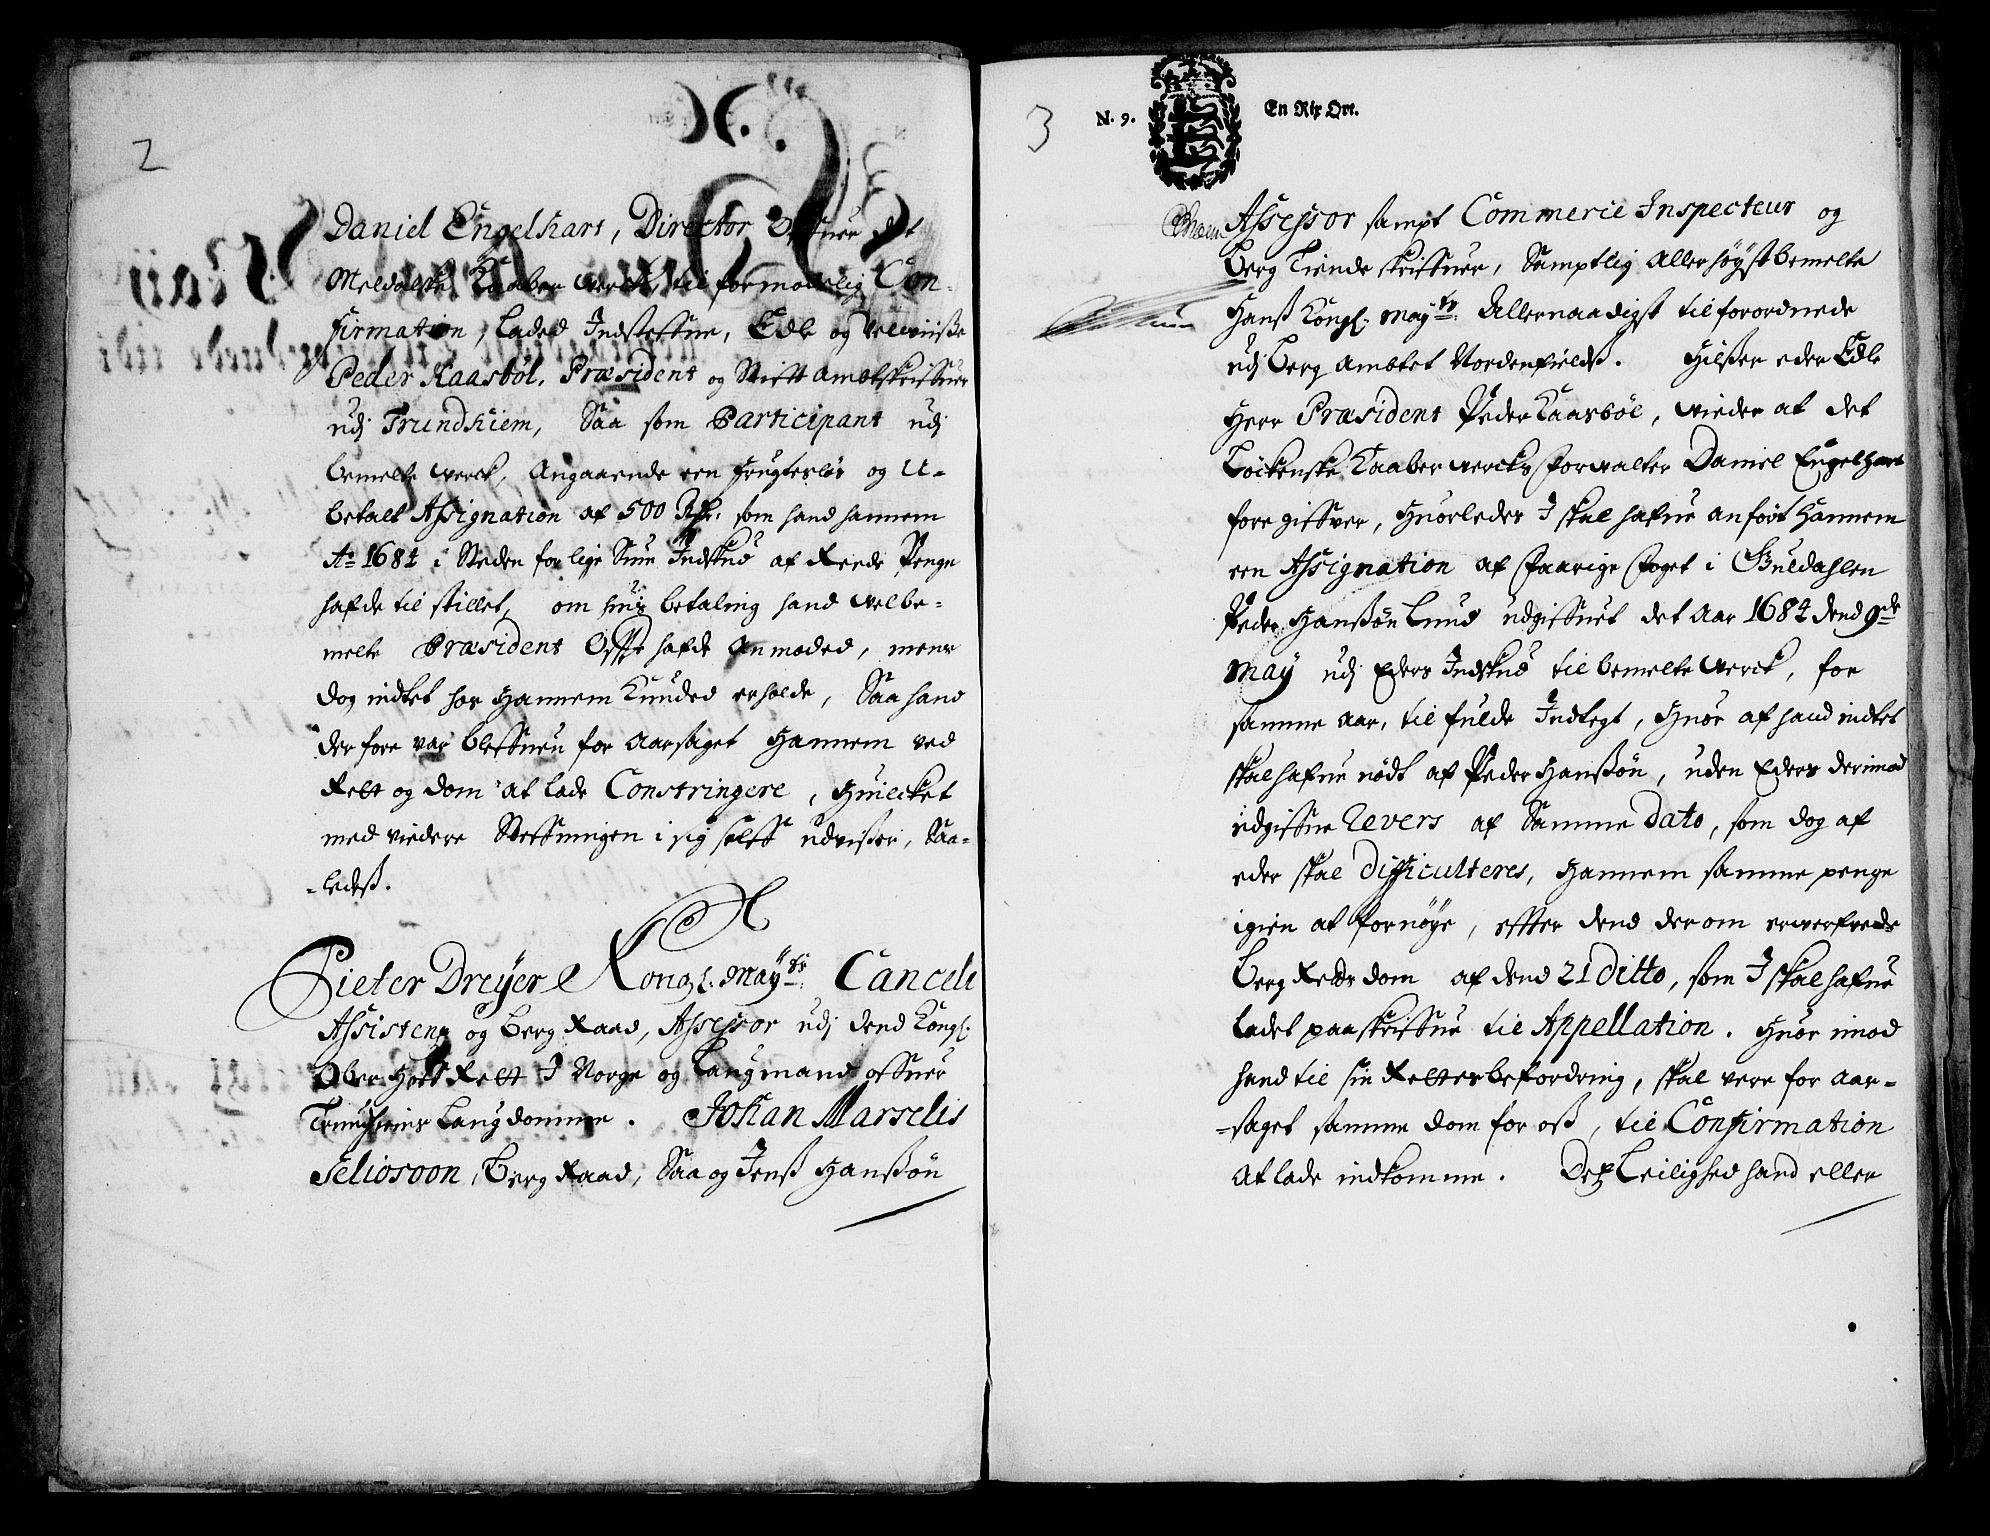 2
Daniel Engelhart, Director Ofuer det
Meldalske Kaaber Werck, til formodelig Con-
firmation, Laded Indsteffne, Edle og Velwiiße
Peder Kaasböl, Præsident og Stifft Ambtskrifuer
udj Trundhiem, Saa som Participant udj
bemelte Werck, Angaaende een frugtesløs og U-
betalt Assignation af 500 Rdr: som hand hannem
Ao 1684 i Steden for lige Sum Indskud af Reede Penge
hafde til stillet, om huis betaling hand Welbe-
melte Præsident Offte hafde Anmoded, menn
dog indtet hos Hannem Kunded erholde, Saa hand
der fore var blefuen for Aarsaget Hannem ved
Rett og dom at lade Constringere, Huilcket
med viedere Steffningen i sig selff udvißer, Saa-
-ledeß.
Pieter Dreyer Kongl. Maytz: Cancelj
Assistentz og Berg Raad, Assessor udj dend Kongl:
Ober Hoff Rett I Norge og Laugmand ofuer
Trundhiems Laugdomme. Johan Marselis
Seliosoon, Berg Raad, Saa og Jenß Hanßøn
3
N. 9.
En Rix Ort.
Assessor sampt Commercie Inspecteur og
Berg Tiende skrifuer, Samptlig Allerhøystbemelte
Hanß Kongl: Maytz: Allernaadigst tilforordnede
udj Berg Ambtet Nordenfieldß. Hilßer eder Edle
Herr Præsident Peder Kaasböl, wieder at det
Løckenske Kaaber wercks Forwalter Daniel Engelhart
foregifver, Huorledes I skal hafue anført Hannem
een Assignation af Faarige Foget i Guldahlen
Peder Hanßøn Lund udgifuet det Aar 1684 dend 9de
May udj Eders Indskud til bemelte Werck, for
samme Aar, til fulde Indtegt, Huor af hand indtet
skal hafue nødt af Peder Hanßøn, uden Eders derimod
udgifne Revers af Samme Dato, som dog af
eder skal Difficulteres, Hannem samme penge
igien at fornøye, effter dend derom erwerfvede
Berg Retts dom af dend 21 Ditto, som I skal hafue
ladet paaskrifue til Appellation. Huor imod
hand til sin Rettes befordring, skal vere for Aar-
-saget samme dom for oß, til Confirmation
At lade indkomme. Detz Leilighed hand eller